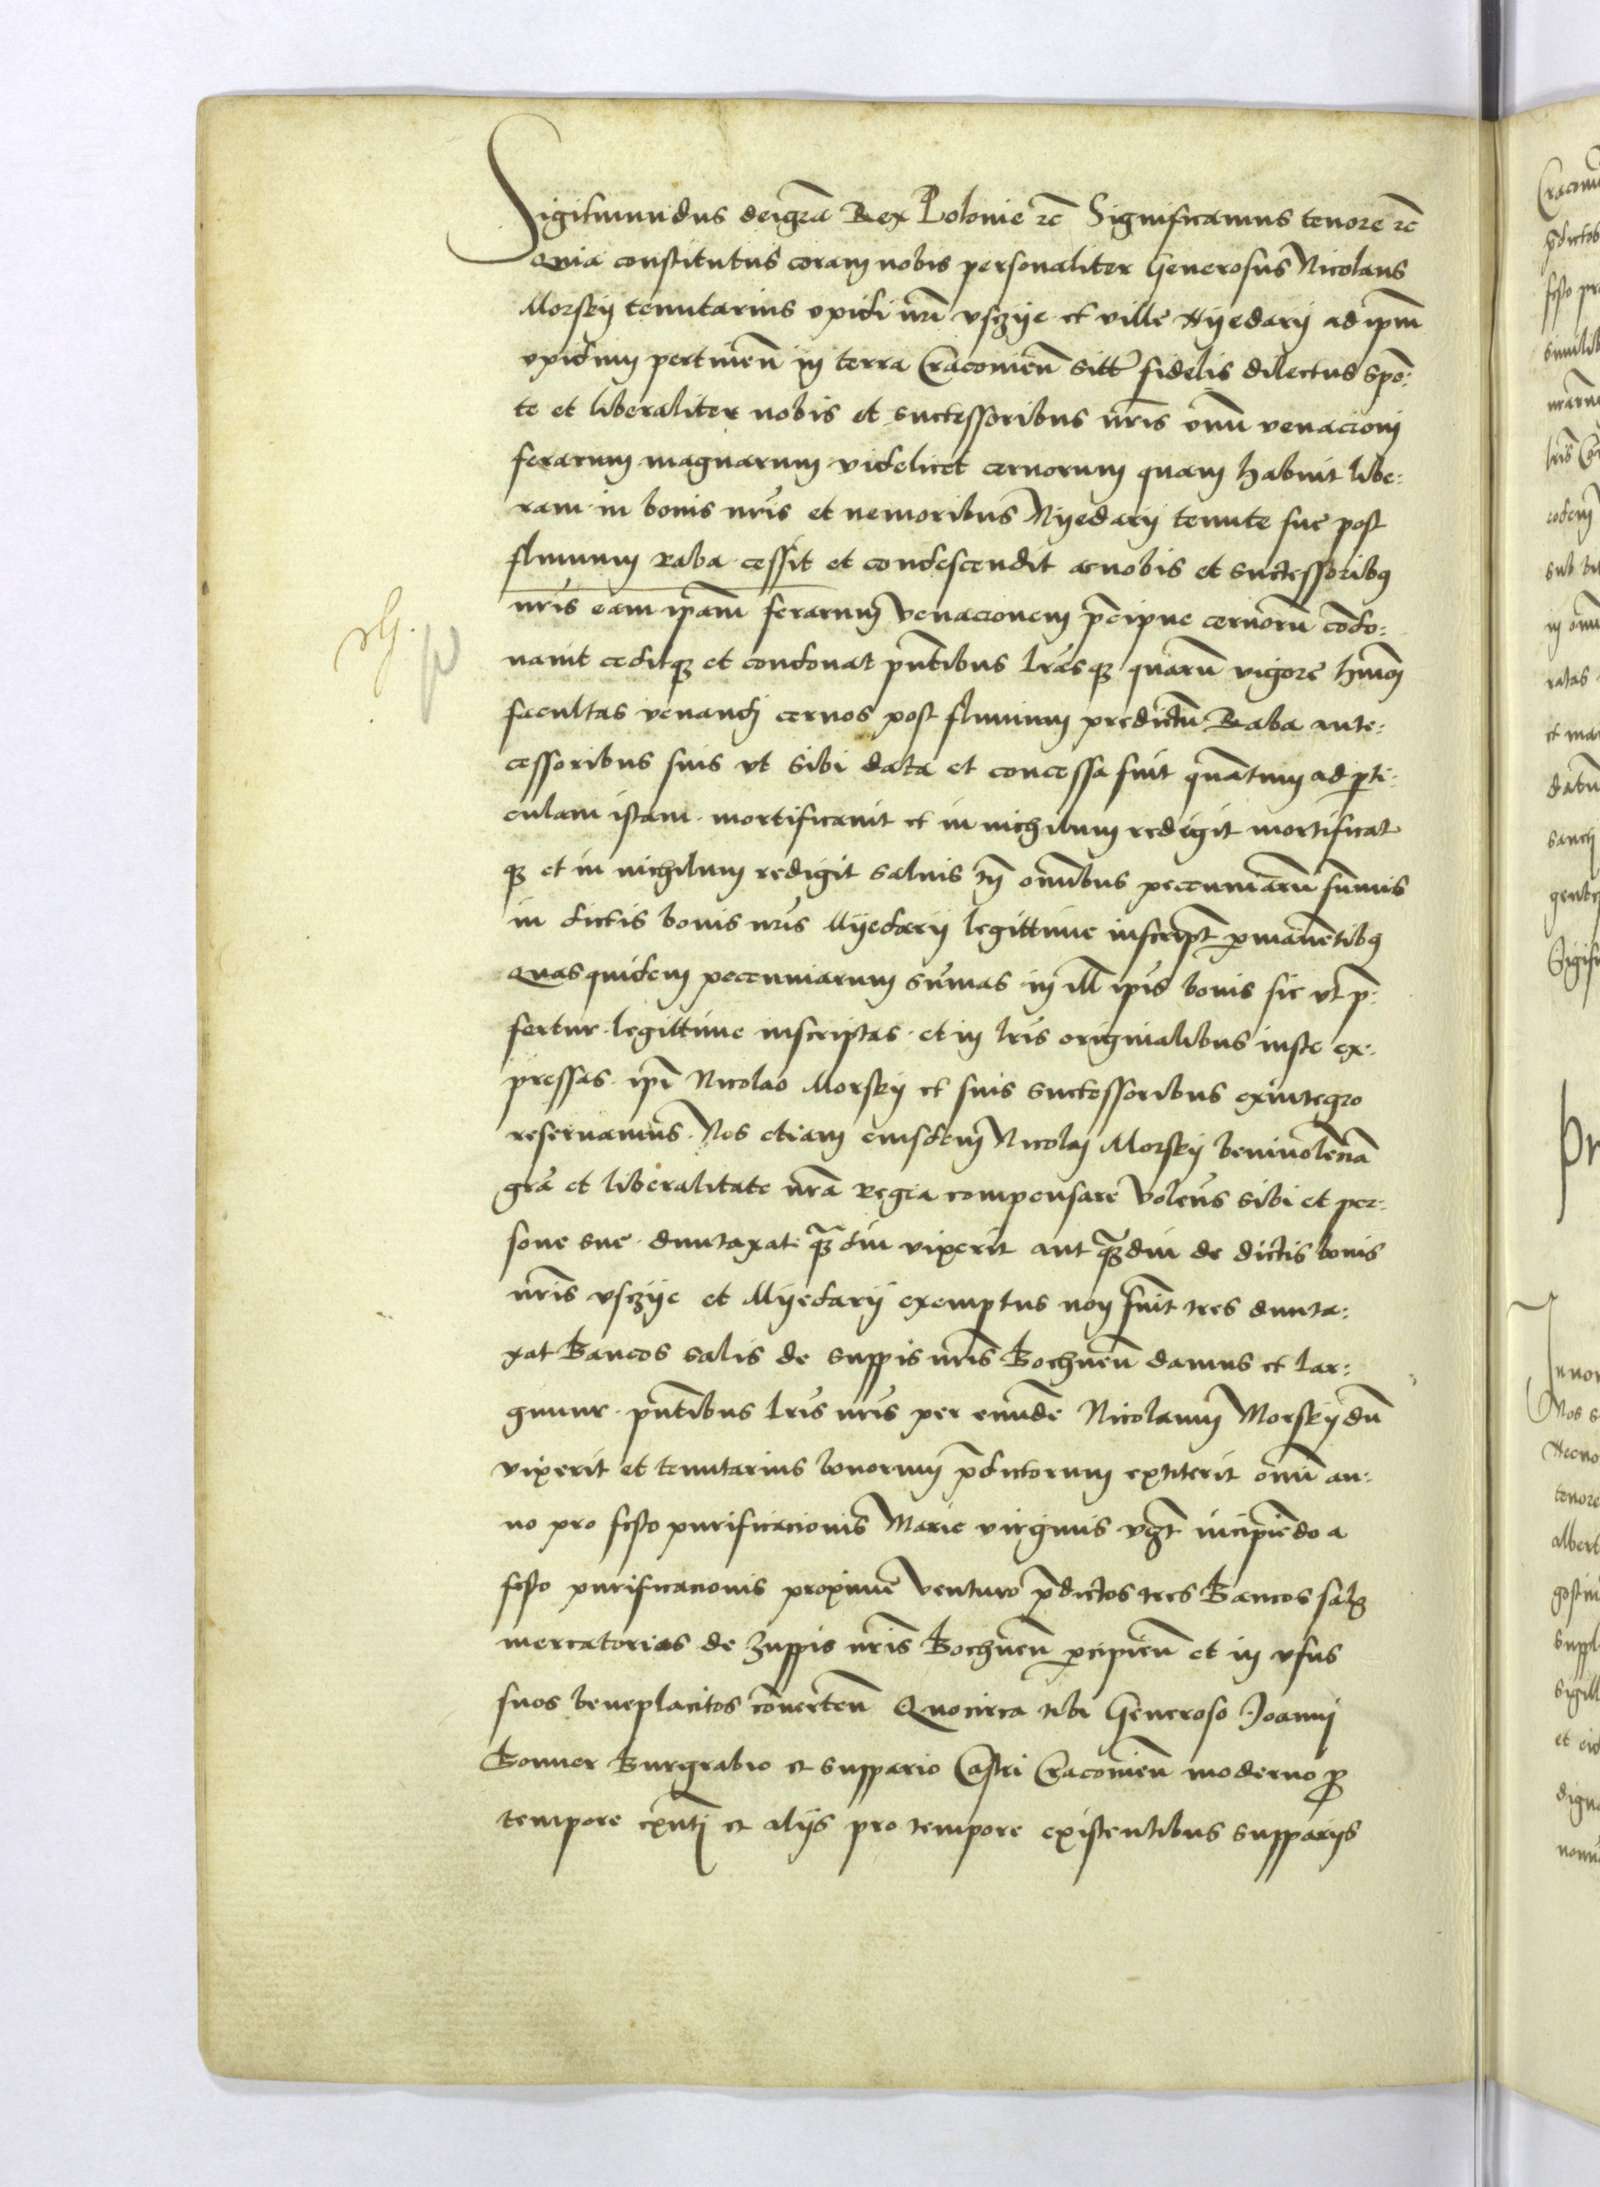 Sigismundus dei gr̄a Rex Polonie ꝛc̄ Significamus tenore ꝛc̄
Quia constitutus coram nobis personaliter Generosus Nicolaus
Morskij tenutarius opidi nr̄i vsczije et ville Nijedarij ad ip̄m
opidum pertineñ in terra Cracovieñ sitt̄ fidelis dilectus spō:
te et liberaliter nobis et successoribus nr̄is om̄ venacioni
ferarum magnarum videlicet cervorum quam habuit libe:
ram in bonis nr̄is et nemoribus Nijedarij tenute sue post
fluvium Raba cessit et condescendit ac nobis et successoribꝯ
nr̄is eam ip̄am ferarum venacionem p̄cipue cervorū cōdo:
navit ceditqꝫ et condonat pn̄tibus lr̄is qꝫ quarū vigore hm̄oi
facultas venandi cervos post fluvium predictū Raba ante:
cessoribus suis vt sibi data et concessa fuit quātum ad ꝑti:
culam istam mortificavit et in nichilum redigit mortificat
qꝫ et in nichilum redigit salvis tn̄ om̄ibus pecuniarū sum̄is
in dictis bonis nr̄is Nijedarij legittime inscript̄ ꝑmanētibꝯ
Quas quidem pecuniarum sum̄as in ill̄ ip̄is bonis sic vt p̄:
fertur legittime inscriptas et in lr̄is originalibus iuste ex:
pressas ip̄i Nicolao Morskij et suis successoribus exintegro
reservamus Nos etiam eiusdem Nicolai Morskij benivolēciā
gr̄a et liberalitate nr̄a Regia compensare volen̄s sibi et per:
sone sue duntaxat qꝫ̄ diu vixerit aut qꝫ̄diu de dictis bonis
nr̄is vsczije et Nijedarij exemptus non fuit tres dunta:
xat Bancos salis de suppis nr̄is Bochneñ damus et lar:
gimur pn̄tibus lr̄is nr̄is per eundē Nicolaum Morskij dū
vixerit et tenutarius bonorum p̄dictorum extiterit om̄i an:
no pro festo purificacionis Marie virginis vḡt incipiēdo a
festo purificacionis proxime venturo p̄dictos tres Bancos sal̄
mercatorios de zuppis nr̄is Bochneñ ꝑcipieñ et in vsus
suos beneplacitos cōverteñ Quocirca tibi Generoso Joanni
Bonner Burgrabio et suppario Castri Cracovieñ moderno ꝓ
tempore exn̄ti et alijs pro tempore existentibus supparijs